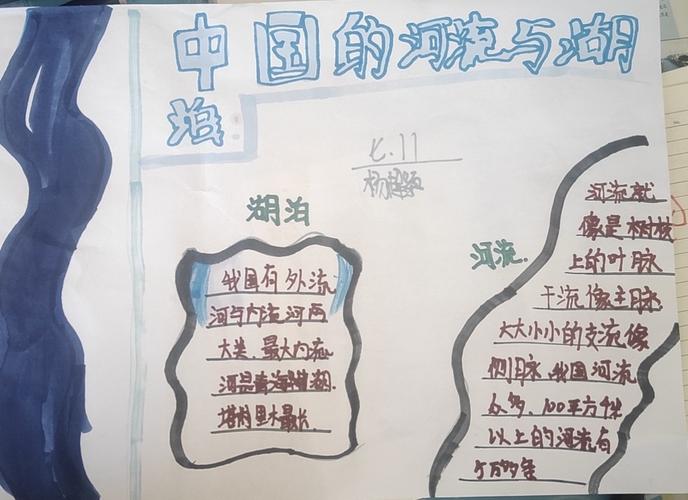 中国的河流与湖
泊
七.11
湖泊
我国有外流
河与内流河两
大类.最大内流
河是青海湖.
塔利里木最长.
河流.
河流就
像是树枝
上的叶脉
干流像主脉
大大小小的支流像
侧脉.我国河流
众多.100平方
以上的河流有